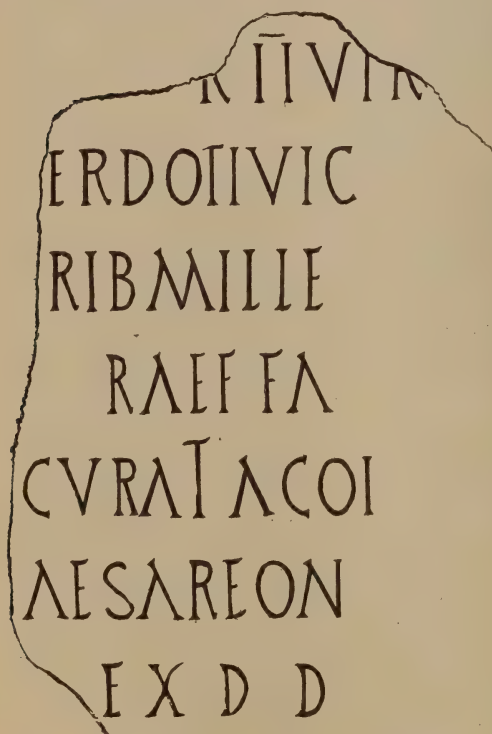 R IIVIR
ERDOTIVIC
RIBMILLE
RAEF FA
CVRAT ACOI
AESAREON
EX D D